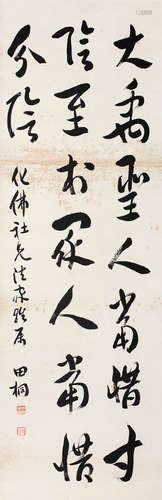 大禹聖人常惜寸
陰至於眾人當惜
分陰
化佛社兄法家雅屬 田桐